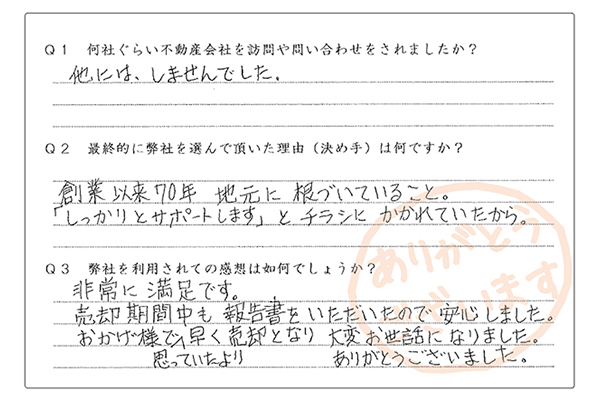 Q1 何社ぐらい不動産会社を訪問や問い合わせをされましたか?
他には、しませんでした。
Q2 最終的に弊社を選んで頂いた理由(決め手)は何ですか?
創業以来70年 地元に 根づいていること。
「しっかりとサポートします」と チラシに かかれていたから。
Q3 弊社を利用されての感想は如何でしょうか?
非常に満足です。
売却期間中も 報告書をいただいたので 安心しました。
おかげ様で、早く売却となり 大変お世話になりました。
思っていたより ありがとうございました。
ありがとう
ございます